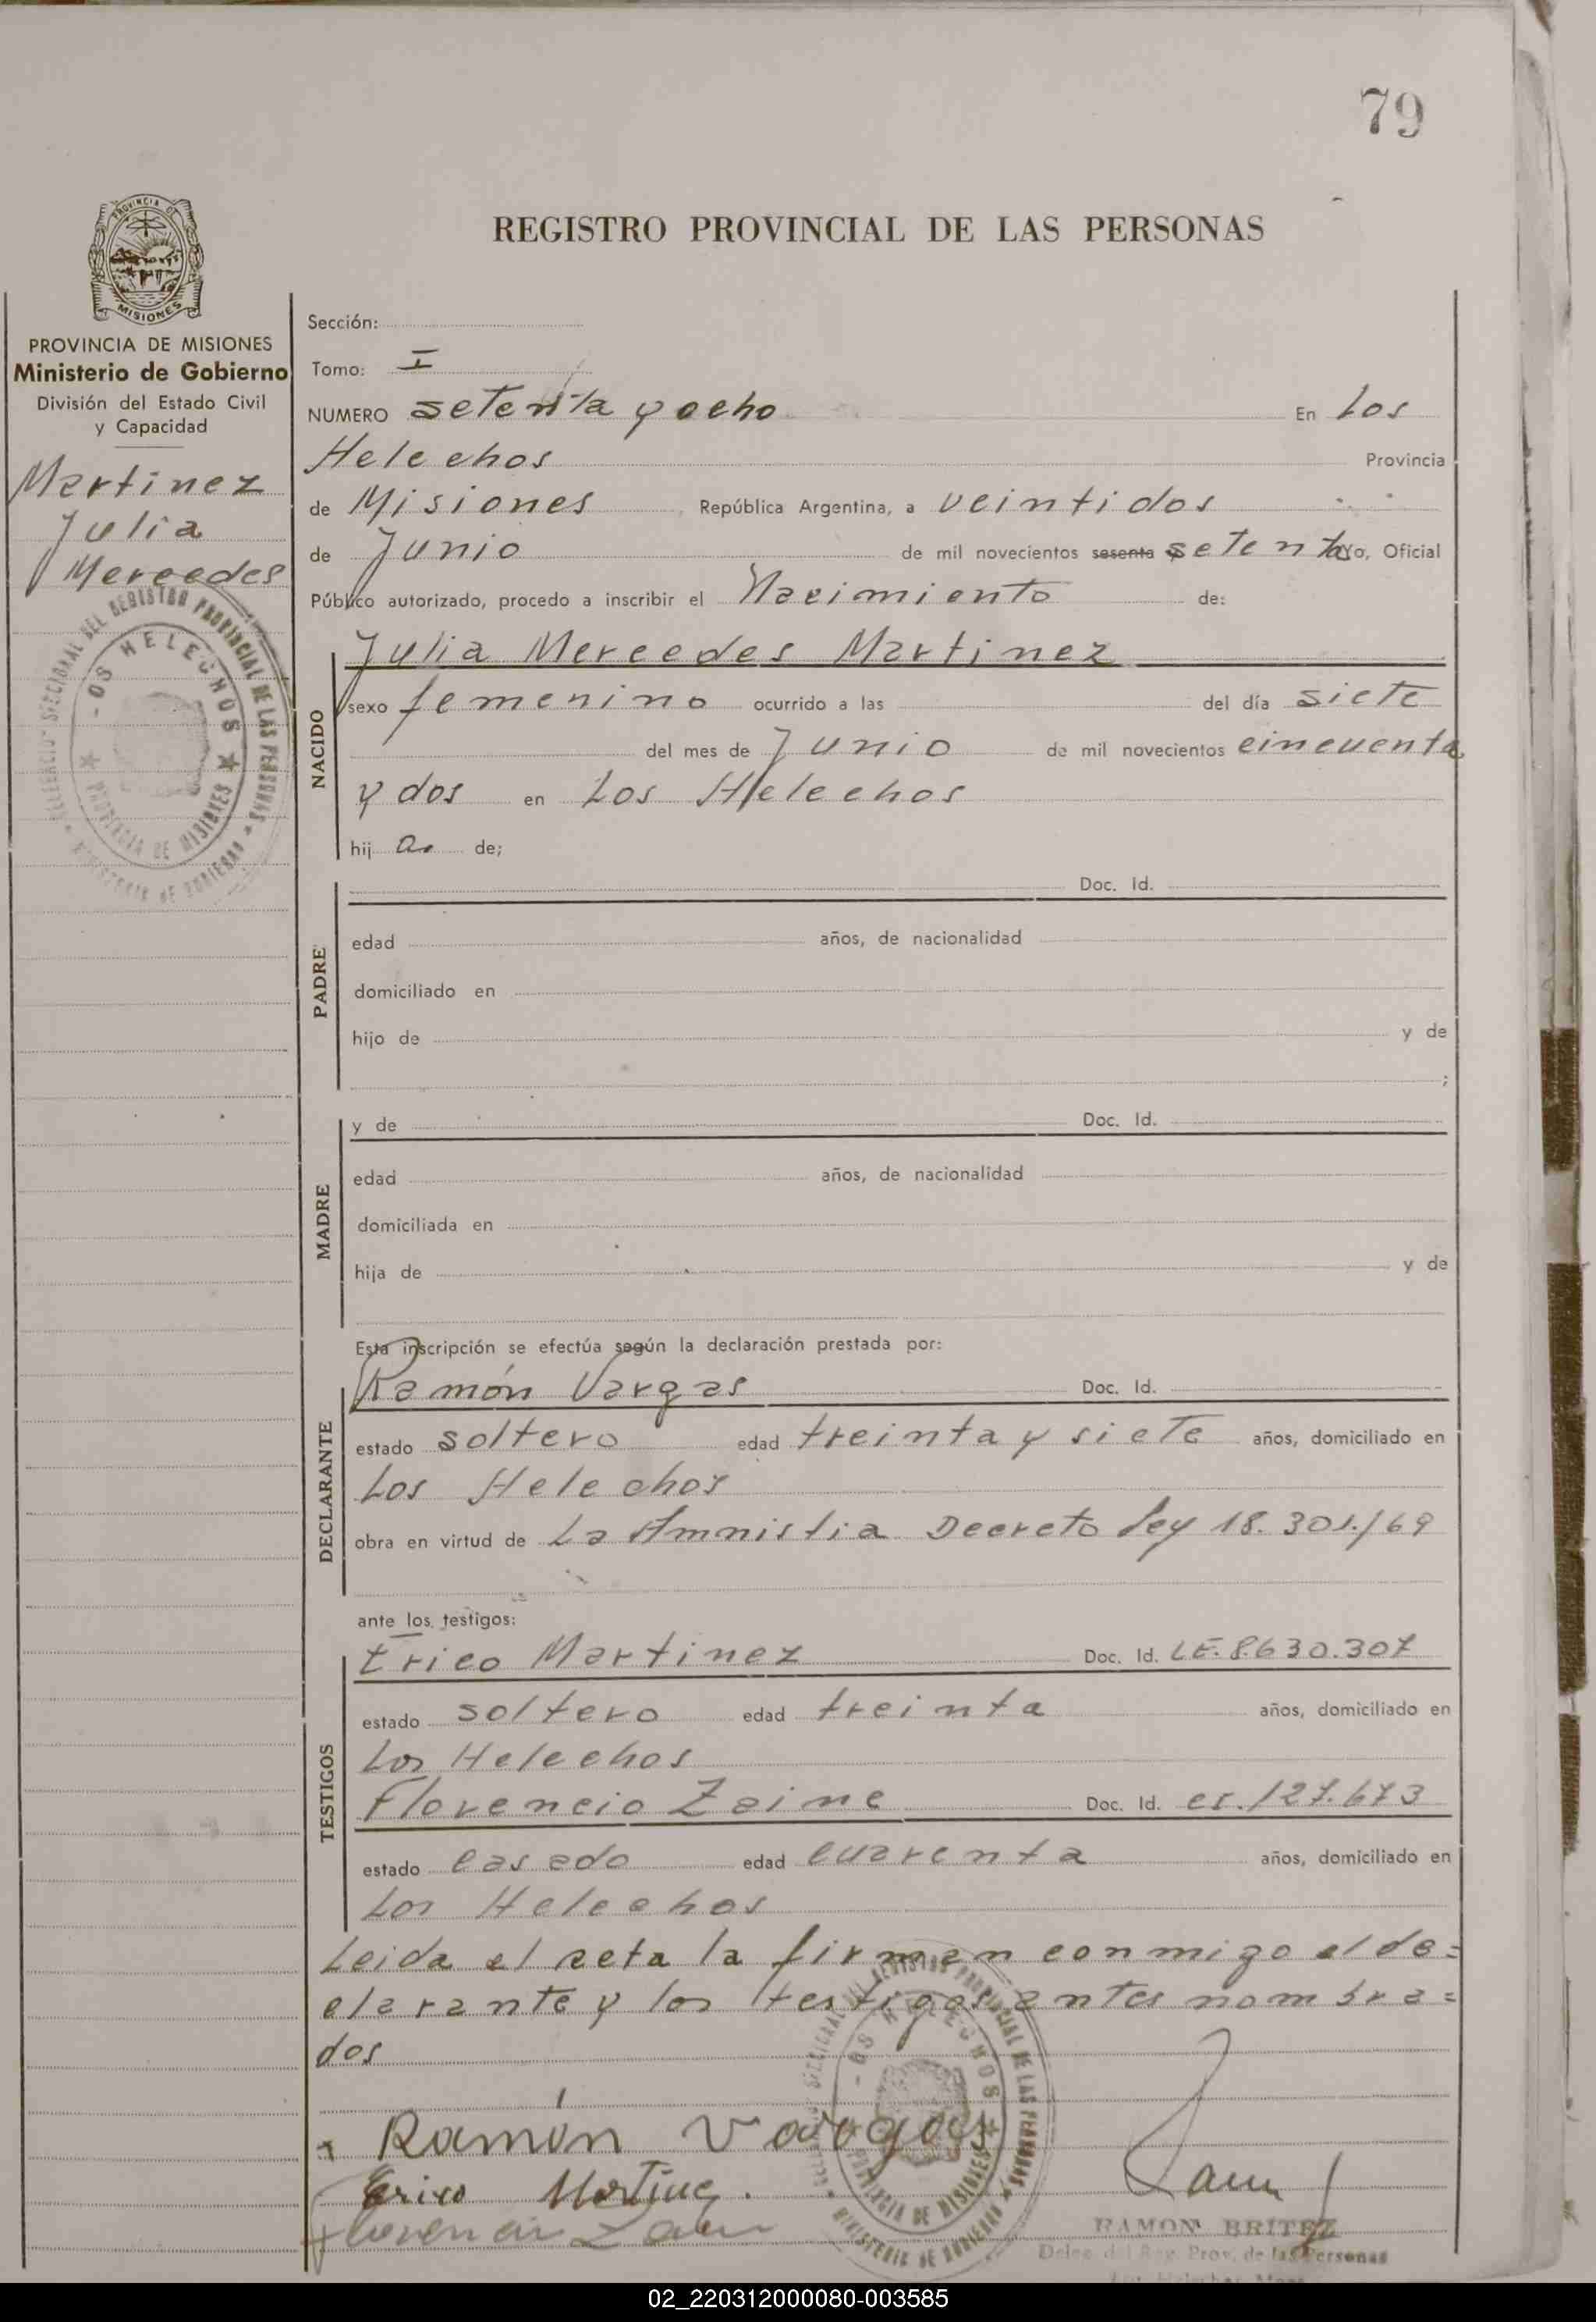 79
PROVINCIA DE
MISIONES
REGISTRO PROVINCIAL DE LAS PERSONAS
PROVINCIA DE MISIONES
Ministerio de Gobierno
División del Estado Civil
y Capacidad
Martinez
Julia
Mercedes
REGISTRO PROVINCIAL DE LAS PERSONAS
HELECHOS
PROVINCIA DE MISIONES
Sección:
Tomo: I
NUMERO setenta y ocho En Los
Helechos Provincia
de Misiones República Argentina, a veintidos
de Junio de mil novecientos sesenta setenta yo, Oficial
Público autorizado, procedo a inscribir el Nacimiento de:
NACIDO
Julia Mercedes Martinez
sexo femenino ocurrido a las del día siete
del mes de Junio de mil novecientos cincuenta
y dos en Los Helechos
hij a. de;
PADRE
Doc. Id.
edad años, de nacionalidad
domiciliado en
hijo de y de
;
MADRE
y de Doc. Id.
edad años, de nacionalidad
domiciliada en
hija de y de
Esta inscripción se efectúa según la declaración prestada por:
DECLARANTE
Ramón Vargas Doc. Id.
estado soltero edad treinta y siete años, domiciliado en
Los Helechos
obra en virtud de La Amnistia Decreto Ley 18.301./69
ante los testigos:
TESTIGOS
Erico Martinez Doc. Id. LE. 8.630.307
estado soltero edad treinta años, domiciliado en
Los Helechos
Florencio Zaine Doc. Id. 127.673
estado casado edad cuarenta años, domiciliado en
Los Helechos
Leida el acta la firman conmigo el de=
clarante y los testigos antes nombra=
dos
Ramón Vargas
Erico Martinez.
RAMON BRITEZ
Deleg. del Reg. Prov. de las Personas
02_220312000080-003585